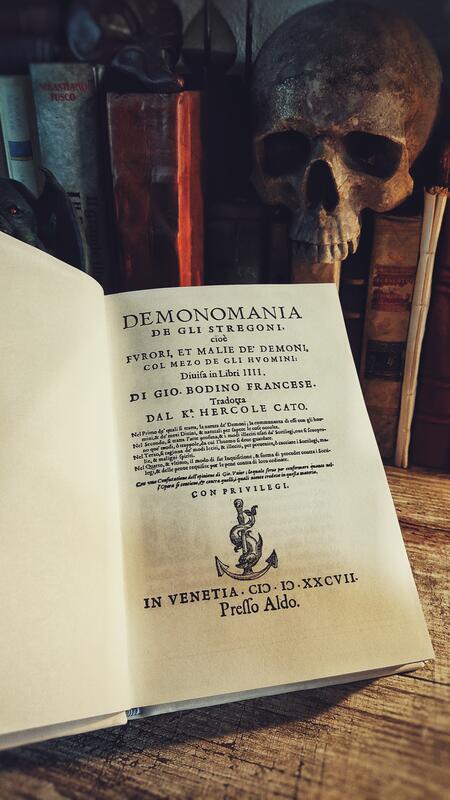 SEBASTIANO
FUSCO
DEMONOMANIA
DE GLI STREGONI,
cioè
FVRORI, ET MALIE DE' DEMONI,
COL MEZO DE GLI HVOMINI:
Diuiſa in Libri IIII.
DI GIO. BODINO FRANCESE.
Tradotta
DAL K.r HERCOLE CATO.
Nel Primo de' quali ſi tratta, la natura de' Demoni; la communanza di eſſi con gli huo-
mini, & de' mezi Diuini, & naturali per ſapere le coſe occulte.
Nel Secondo, ſi tratta l'arte & i modi illeciti vſati da' Sortilegi,
Nel Terzo, ſi ragiona de' modi leciti, & illeciti, per preuenire, ò cacciare i Sortilegi, ma-
lie, & maligni ſpiriti.
Nel Quarto, & vltimo, il modo di far Inquiſitione, & forma di procedere contra i Sorti-
legi, & delle proue requiſite per le pene contra di loro ordinate.
Con vna Confutatione dell'opinione di Gio. Vuier; per confermare quanto nel-
l'Opera ſi contiene, & contra
CON PRIVILEGI.
IN VENETIA. CIↃ. IↃ. XXCVII.
Preſſo Aldo.